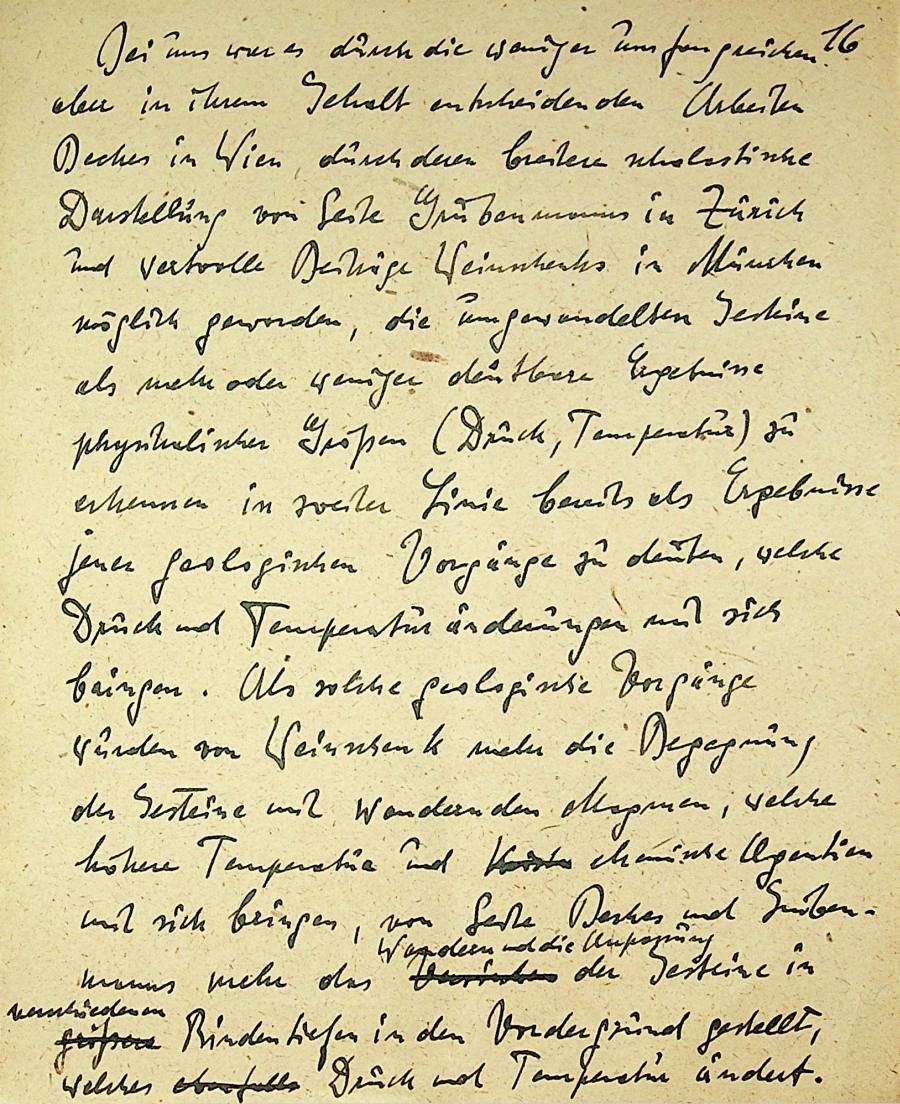 16
Bei uns war es durch die weniger umfangreichen
aber in ihrem Gehalt entscheidenden Arbeiten
Beckes in Wien, durch deren breitere scholastische
Darstellung von Seite Grubenmanns in Zürich
und wertvolle Beiträge Weinschenks in München
möglich geworden, die umgewandelten Gesteine
als mehr oder weniger deutbare Ergebnisse
physikalischer Größen (Druck, Temperatur) zu
erkennen in zweiter Linie bereits als Ergebnisse
jener geologischen Vorgänge zu deuten, welche
Druck und Temperaturänderungen mit sich
bringen. Als solche geologische Vorgänge
wurden von Weinschenk mehr die Begegnung
der Gesteine mit wandernden Magmen, welche
höhere Temperatur und chemische Agentien
mit sich bringen, von Seite Beckes und Gruben-
Wandern und die Anpassung
manns mehr das der Gesteine in
verschiedenen
größere Rindentiefen in den Vordergrund gestellt,
welches ebenfalls Druck und Temperatur ändert.